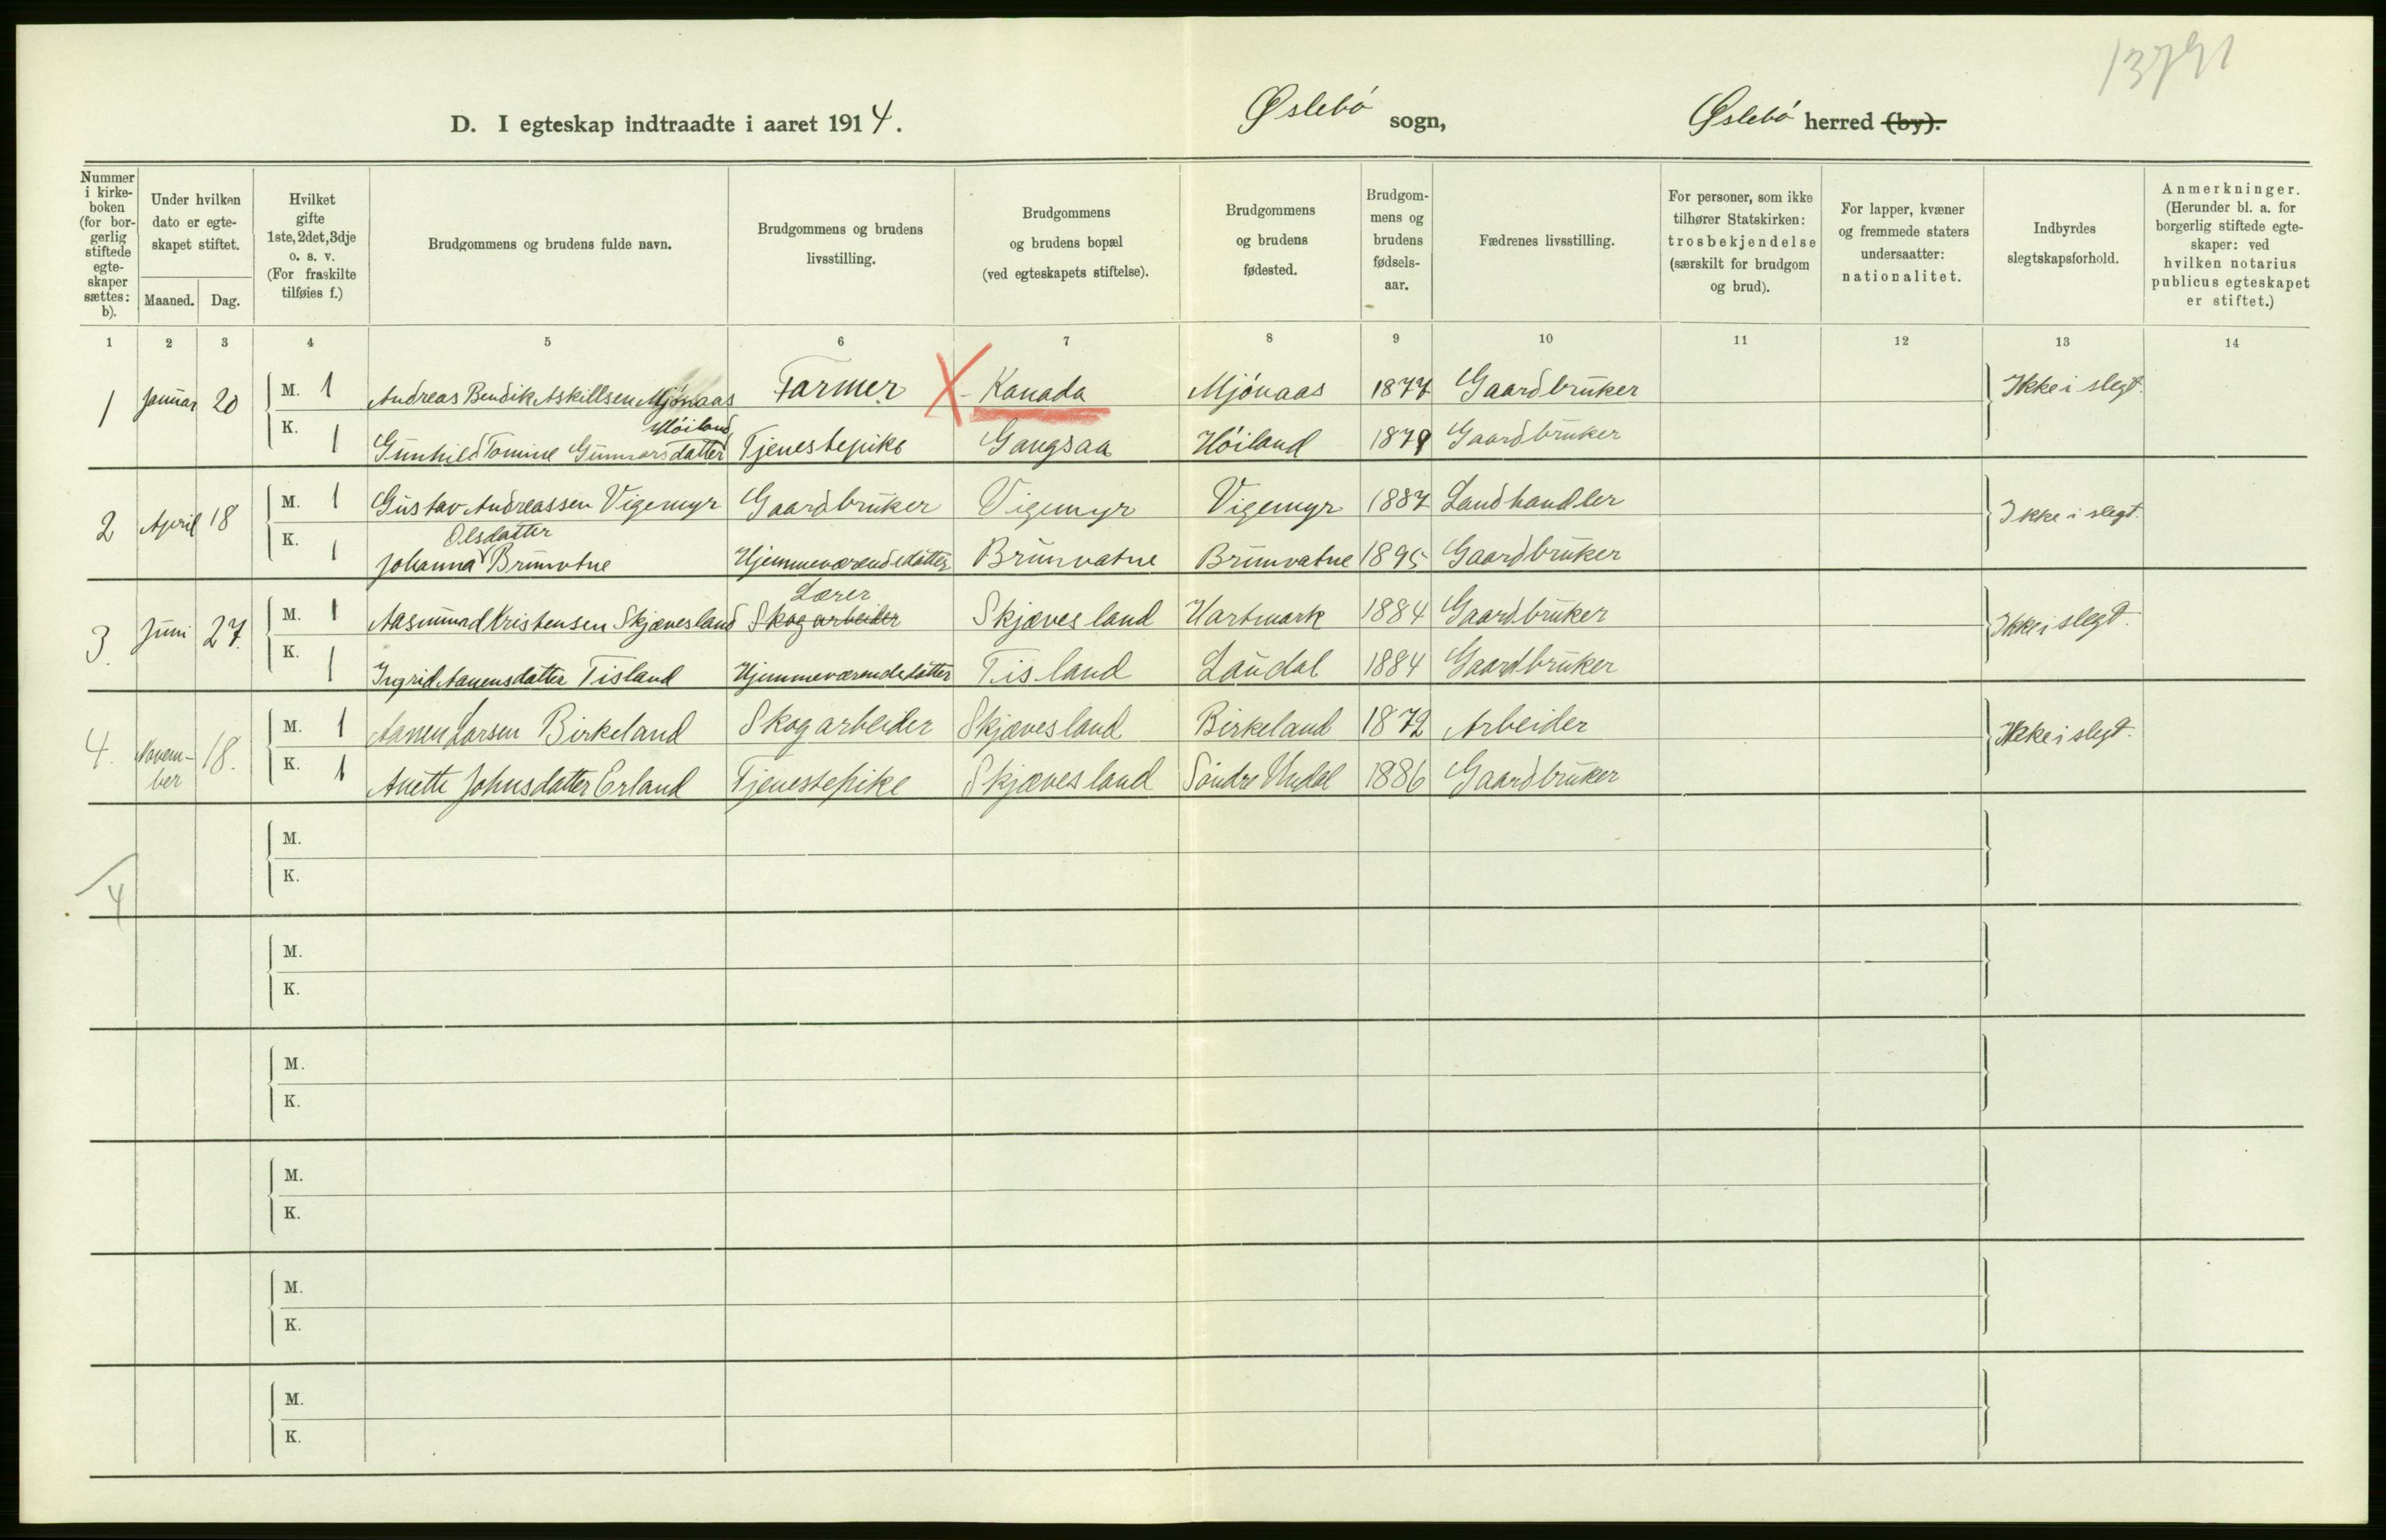 13791
D. I egteskap indtraadte i aaret 1914. Øslebö sogn, Øslebö herred (by).
Nummer i kirke-boken (for bor-gerlig stiftede egte-skaper sættes: b).
Under hvilken dato er egte-skapet stiftet.
Maaned. Dag.
Hvilket gifte 1ste, 2det, 3dje o. s. v. (For fraskilte tilføies f.)
Brudgommens og brudens fulde navn.
Brudgommens og brudens livsstilling.
Brudgommens og brudens bopæl (ved egteskapets stiftelse).
Brudgommens og brudens fødested.
Brudgom-mens og brudens fødsels-aar.
Fædrenes livsstilling.
For personer, som ikke tilhører Statskirken: trosbekjendelse (særskilt for brudgom og brud).
For lapper, kvæner og fremmede staters undersaatter: nationalitet.
Indbyrdes slegtskapsforhold.
Anmerkninger. (Herunder bl. a. for borgerlig stiftede egte-skaper: ved hvilken notarius publicus egteskapet er stiftet.)
1 2 3 4 5 6 7 8 9 10 11 12 13 14
1 Januar 20 M. 1 Andreas Bendik Askillsen Mjónaas Farmer X - Kanada Mjónaas 1877 Gaardbruker Ikke i slegt.
Höiland
K. 1 Gunhild Tomine Gunnarsdatter Tjenestepike Gangsaa Höiland 1879 Gaardbruker
2 April 18 M. 1 Gustav Andreassen Vigemyr Gaardbruker Vigemyr Vigemyr 1887 Landhandler Ikke i slegt.
Olsdatter
K. 1 Johanna Brunvtne Hjemmeværende datter Brunvatne Brunvatne 1895 Gaardbruker
Lærer
3. Juni 27. M. 1 Aasmund Kristensen Skjævesland Skogarbeider Skjævesland Hartmark 1884 Gaardbruker Ikke i slegt.
K. 1 Ingrid Aanensdatter Tisland Hjemmeværende datter Tisland Laudal 1884 Gaardbruker
4. Novem-ber 18. M. 1 Aanen Larsen Birkeland Skogarbeider Skjævesland Birkeland 1872 Arbeider Ikke i slegt.
K. 1 Anette Johnsdatter Erland Tjenestepike Skjævesland Söndre Undal 1886 Gaardbruker
M.
K.
4
M.
K.
M.
K.
M.
K.
M.
K.
M.
K.